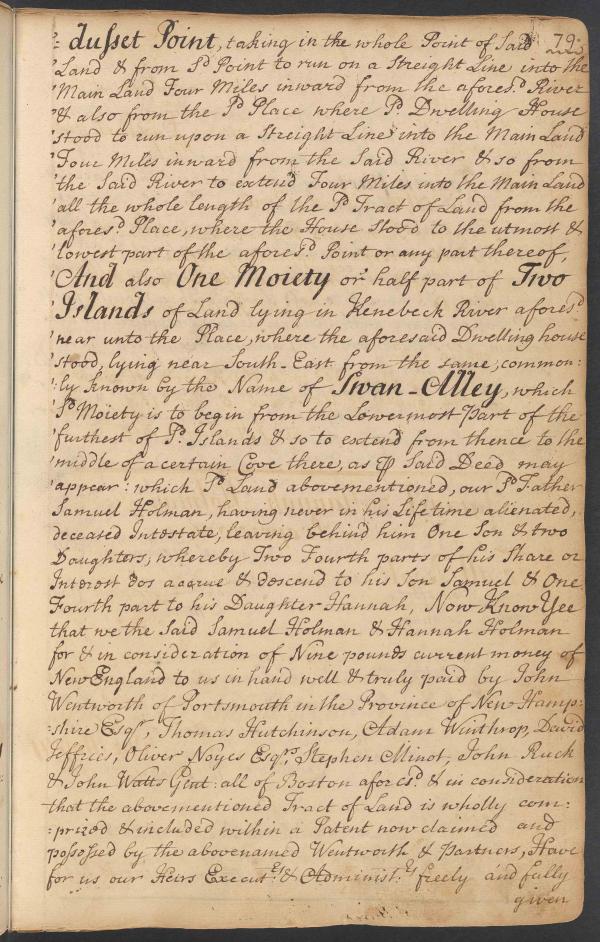 79:
:dusset Point, taking in the whole Point of Said
Land & from Sd. Point to run on a Streight Line into the
Main Land Four Miles inward from the afores.d River
& also from the Sd. Place where Sd. Dwelling House
stood to run upon a Streight Line into the Main Land
Four Miles inward from the Said River & so from
the Said River to extend Four Miles into the Main Land
all the whole length of the Sd. Tract of Land from the
afores.d Place, where the House stood to the utmost &
lowest part of the afores.d Point or any part thereof,
And also One Moiety or half part of Two
Islands of Land lying in Kenebeck River afores.d
near unto the Place, where the aforesaid Dwelling house
stood, lying near South-East from the same, common:
:ly known by the Name of Swan-Alley, which
Sd. Moiety is to begin from the Lowermost Part of the
furthest of Sd. Islands & so to extend from thence to the
middle of a certain Cove there, as ⅌ Said Deed may
appear: which Sd. Land abovementioned, our Sd. Father
Samuel Holman, having never in his Lifetime alienated,
deceased Intestate, leaving behind him One Son & two
Daughters, whereby Two Fourth parts of his Share or
Interest dos accrue & descend to his Son Samuel & One
Fourth part to his Daughter Hannah, Now Know Yee
that we the Said Samuel Holman & Hannah Holman
for & in consideration of Nine pounds current money of
New England to us in hand well & truly paid by John
Wentworth of Portsmouth in the Province of New Hamp-
:shire Esqr., Thomas Hutchinson, Adam Winthrop, David
Jeffries, Oliver Noyes Esqrs., Stephen Minot, John Ruck
& John Watts Gent: all of Boston afores.d & in consideration
that the abovementioned Tract of Land is wholly com:
:prized & included within a Patent now claimed and
possessed by the abovenamed Wentworth & Partners, Have
for us our Heirs Execut.rs & Administ.rs freely and fully
given